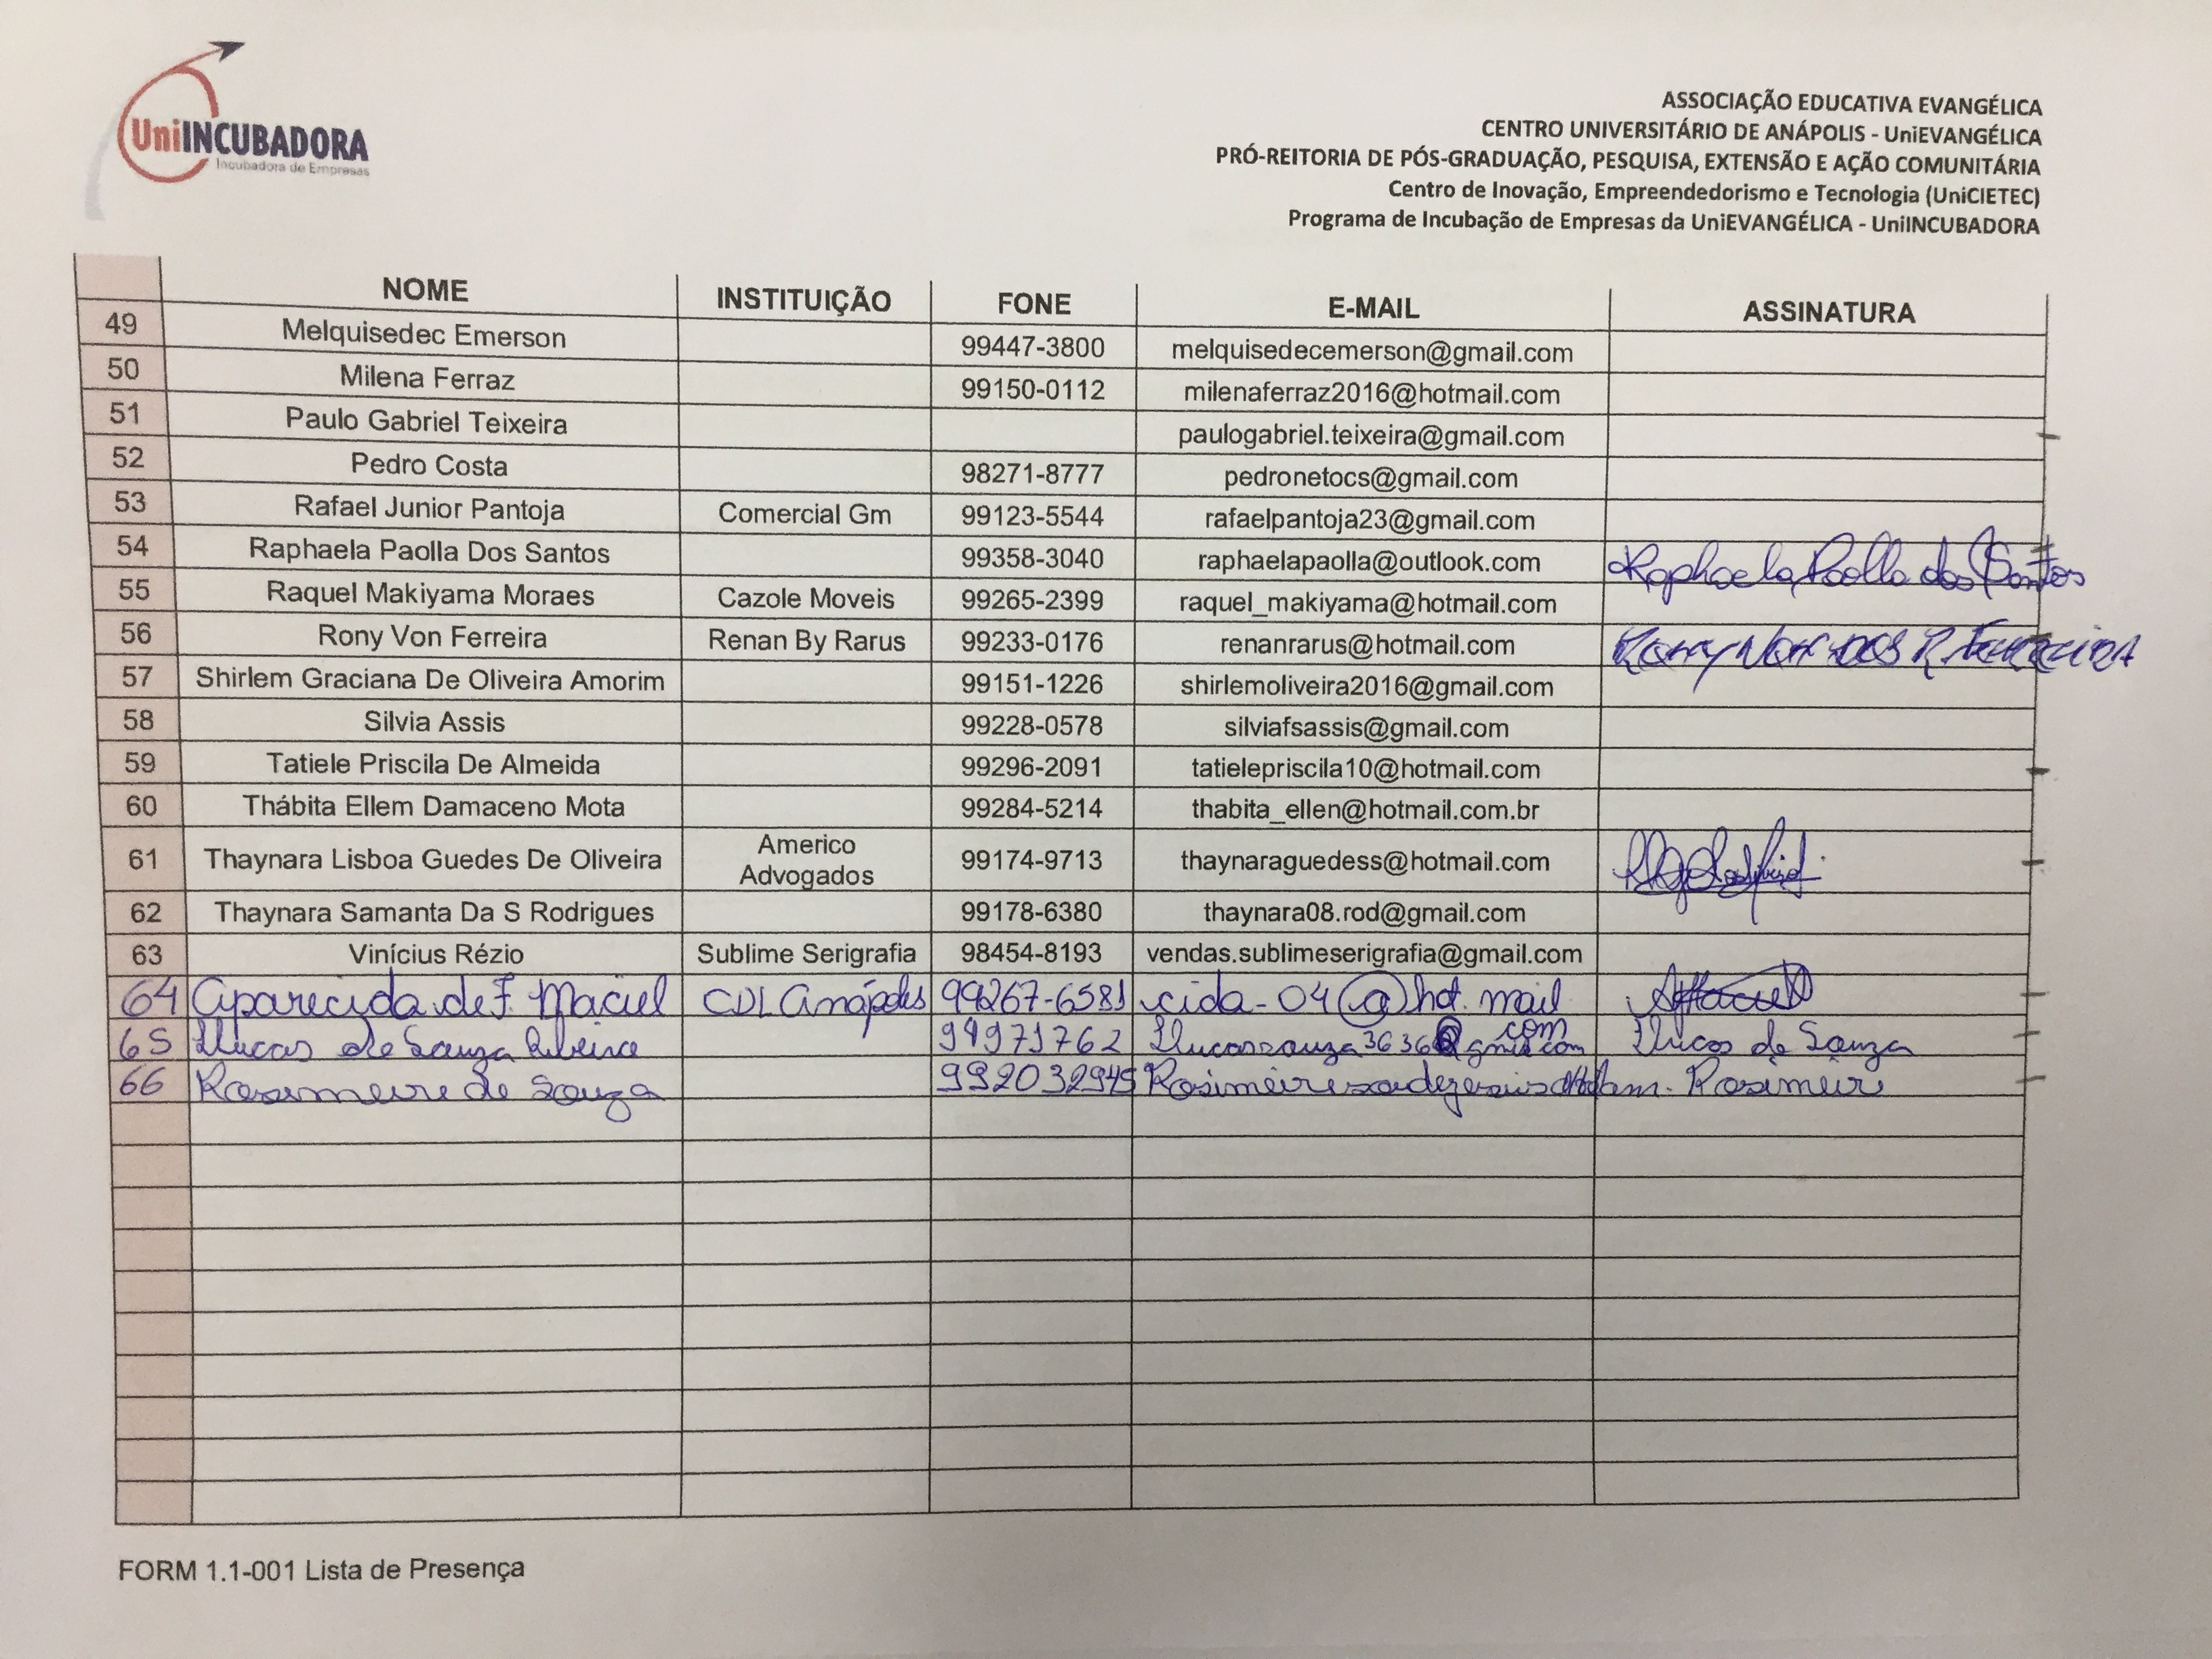 UniINCUBADORA
Incubadora de Empresas
ASSOCIAÇÃO EDUCATIVA EVANGÉLICA
CENTRO UNIVERSITÁRIO DE ANÁPOLIS - UniEVANGÉLICA
PRÓ-REITORIA DE PÓS-GRADUAÇÃO, PESQUISA, EXTENSÃO E AÇÃO COMUNITÁRIA
Centro de Inovação, Empreendedorismo e Tecnologia (UniCIETEC)
Programa de Incubação de Empresas da UniEVANGÉLICA - UniINCUBADORA
NOME INSTITUIÇÃO FONE E-MAIL ASSINATURA
49 Melquisedec Emerson 99447-3800 melquisedecemerson@gmail.com
50 Milena Ferraz 99150-0112 milenaferraz2016@hotmail.com
51 Paulo Gabriel Teixeira paulogabriel.teixeira@gmail.com
52 Pedro Costa 98271-8777 pedronetocs@gmail.com
53 Rafael Junior Pantoja Comercial Gm 99123-5544 rafaelpantoja23@gmail.com
54 Raphaela Paolla Dos Santos 99358-3040 raphaelapaolla@outlook.com Raphaela Paolla dos Santos
55 Raquel Makiyama Moraes Cazole Moveis 99265-2399 raquel_makiyama@hotmail.com
56 Rony Von Ferreira Renan By Rarus 99233-0176 renanrarus@hotmail.com Rony Von dos R. Ferreira
57 Shirlem Graciana De Oliveira Amorim 99151-1226 shirlemoliveira2016@gmail.com
58 Silvia Assis 99228-0578 silviafsassis@gmail.com
59 Tatiele Priscila De Almeida 99296-2091 tatielepriscila10@hotmail.com
60 Thábita Ellem Damaceno Mota 99284-5214 thabita_ellen@hotmail.com.br
61 Thaynara Lisboa Guedes De Oliveira Americo Advogados 99174-9713 thaynaraguedess@hotmail.com
62 Thaynara Samanta Da S Rodrigues 99178-6380 thaynara08.rod@gmail.com
63 Vinícius Rézio Sublime Serigrafia 98454-8193 vendas.sublimeserigrafia@gmail.com
64 Aparecida de F. Maciel CDL Anápolis 99267-6581 cida-04@hot.mail com
65 Llucas de Souza Ribeiro 94971762 Llucas de Souza
66 Rosimeire de Souza 992032945 Rosimeir
FORM 1.1-001 Lista de Presença